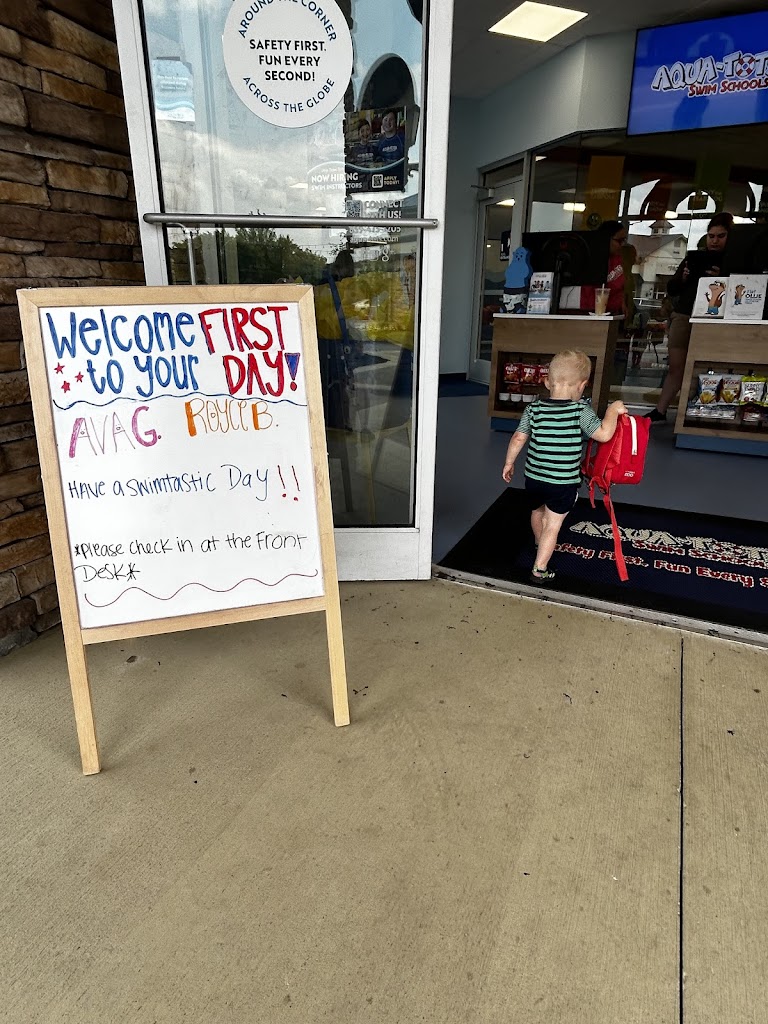 AROUND THE CORNER
SAFETY FIRST.
FUN EVERY
SECOND!
ACROSS THE GLOBE
NOW HIRING
SWIM INSTRUCTORS
APPLY
TODAY!
CONNECT
WITH US!
AQUA-TOTS
SWIM SCHOOLS
Welcome FIRST
to your DAY!
AVA G. ROYCE B.
Have a swimtastic Day!!
*please check in at the Front
Desk*
OLLIE
AQUA-TOTS
SWIM SCHOOLS
Safety First, Fun Every S